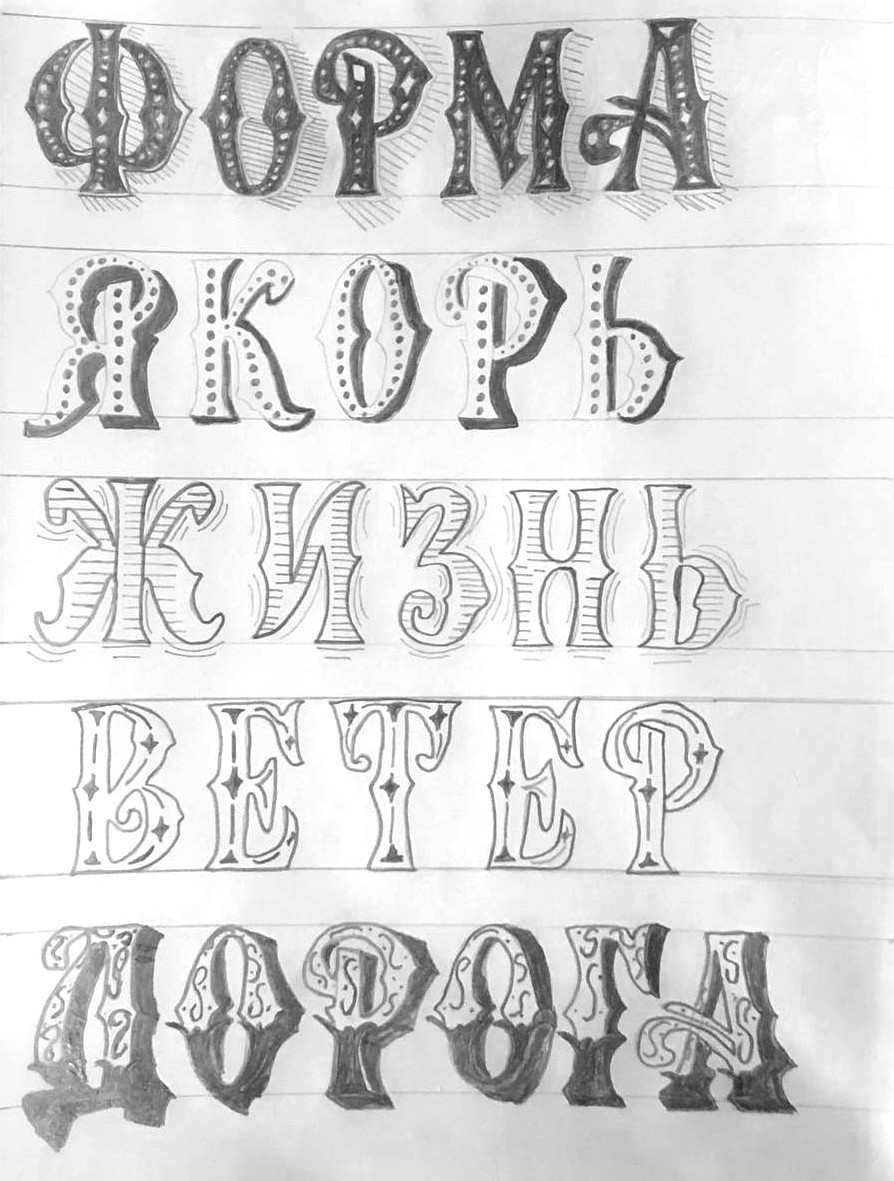 ФОРМА
ЯКОРЬ
ЖИЗНЬ
ВЕТЕР
ДОРОГА